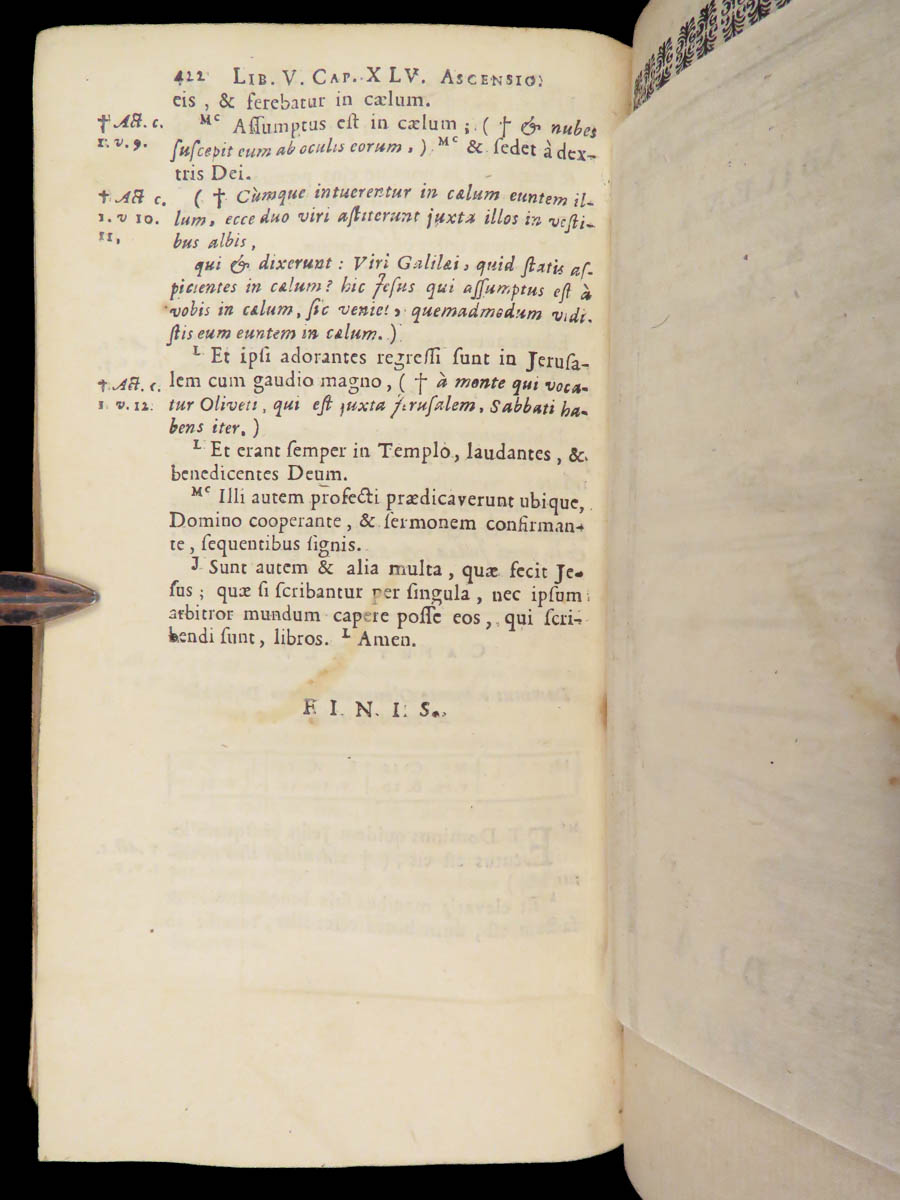 422 LIB. V. CAP. XLV. ASCENSIO.
eis, & ferebatur in cælum.
Mc Aſſumptus eſt in cælum; († & nubes
ſuſcepit eum ab oculis eorum,) Mc & ſedet à dex-
tris Dei.
† Act. c.
1. v. 9.
(† Cùmque intuerentur in cælum euntem il-
lum, ecce duo viri aſtiterunt juxta illos in veſti-
bus albis,
† Act c.
1. v 10.
11,
qui & dixerunt: Viri Galilæi, quid ſtatis aſ-
picientes in cælum? hic Jeſus qui aſſumptus eſt à
vobis in cælum, ſic veniet, quemadmodum vidi-
ſtis eum euntem in cælum.)
L Et ipſi adorantes regreſſi ſunt in Jeruſa-
lem cum gaudio magno, († à monte qui voca-
tur Oliveti, qui eſt juxta Jeruſalem, Sabbati ha-
bens iter.)
† Act. c.
1. v. 12.
L Et erant ſemper in Templo, laudantes, &
benedicentes Deum.
Mc Illi autem profecti prædicaverunt ubique,
Domino cooperante, & ſermonem confirman-
te, ſequentibus ſignis.
J Sunt autem & alia multa, quæ fecit Je-
ſus; quæ ſi ſcribantur per ſingula, nec ipſum
arbitror mundum capere poſſe eos, qui ſcri-
bendi ſunt, libros. L Amen.
F I. N. I. S.